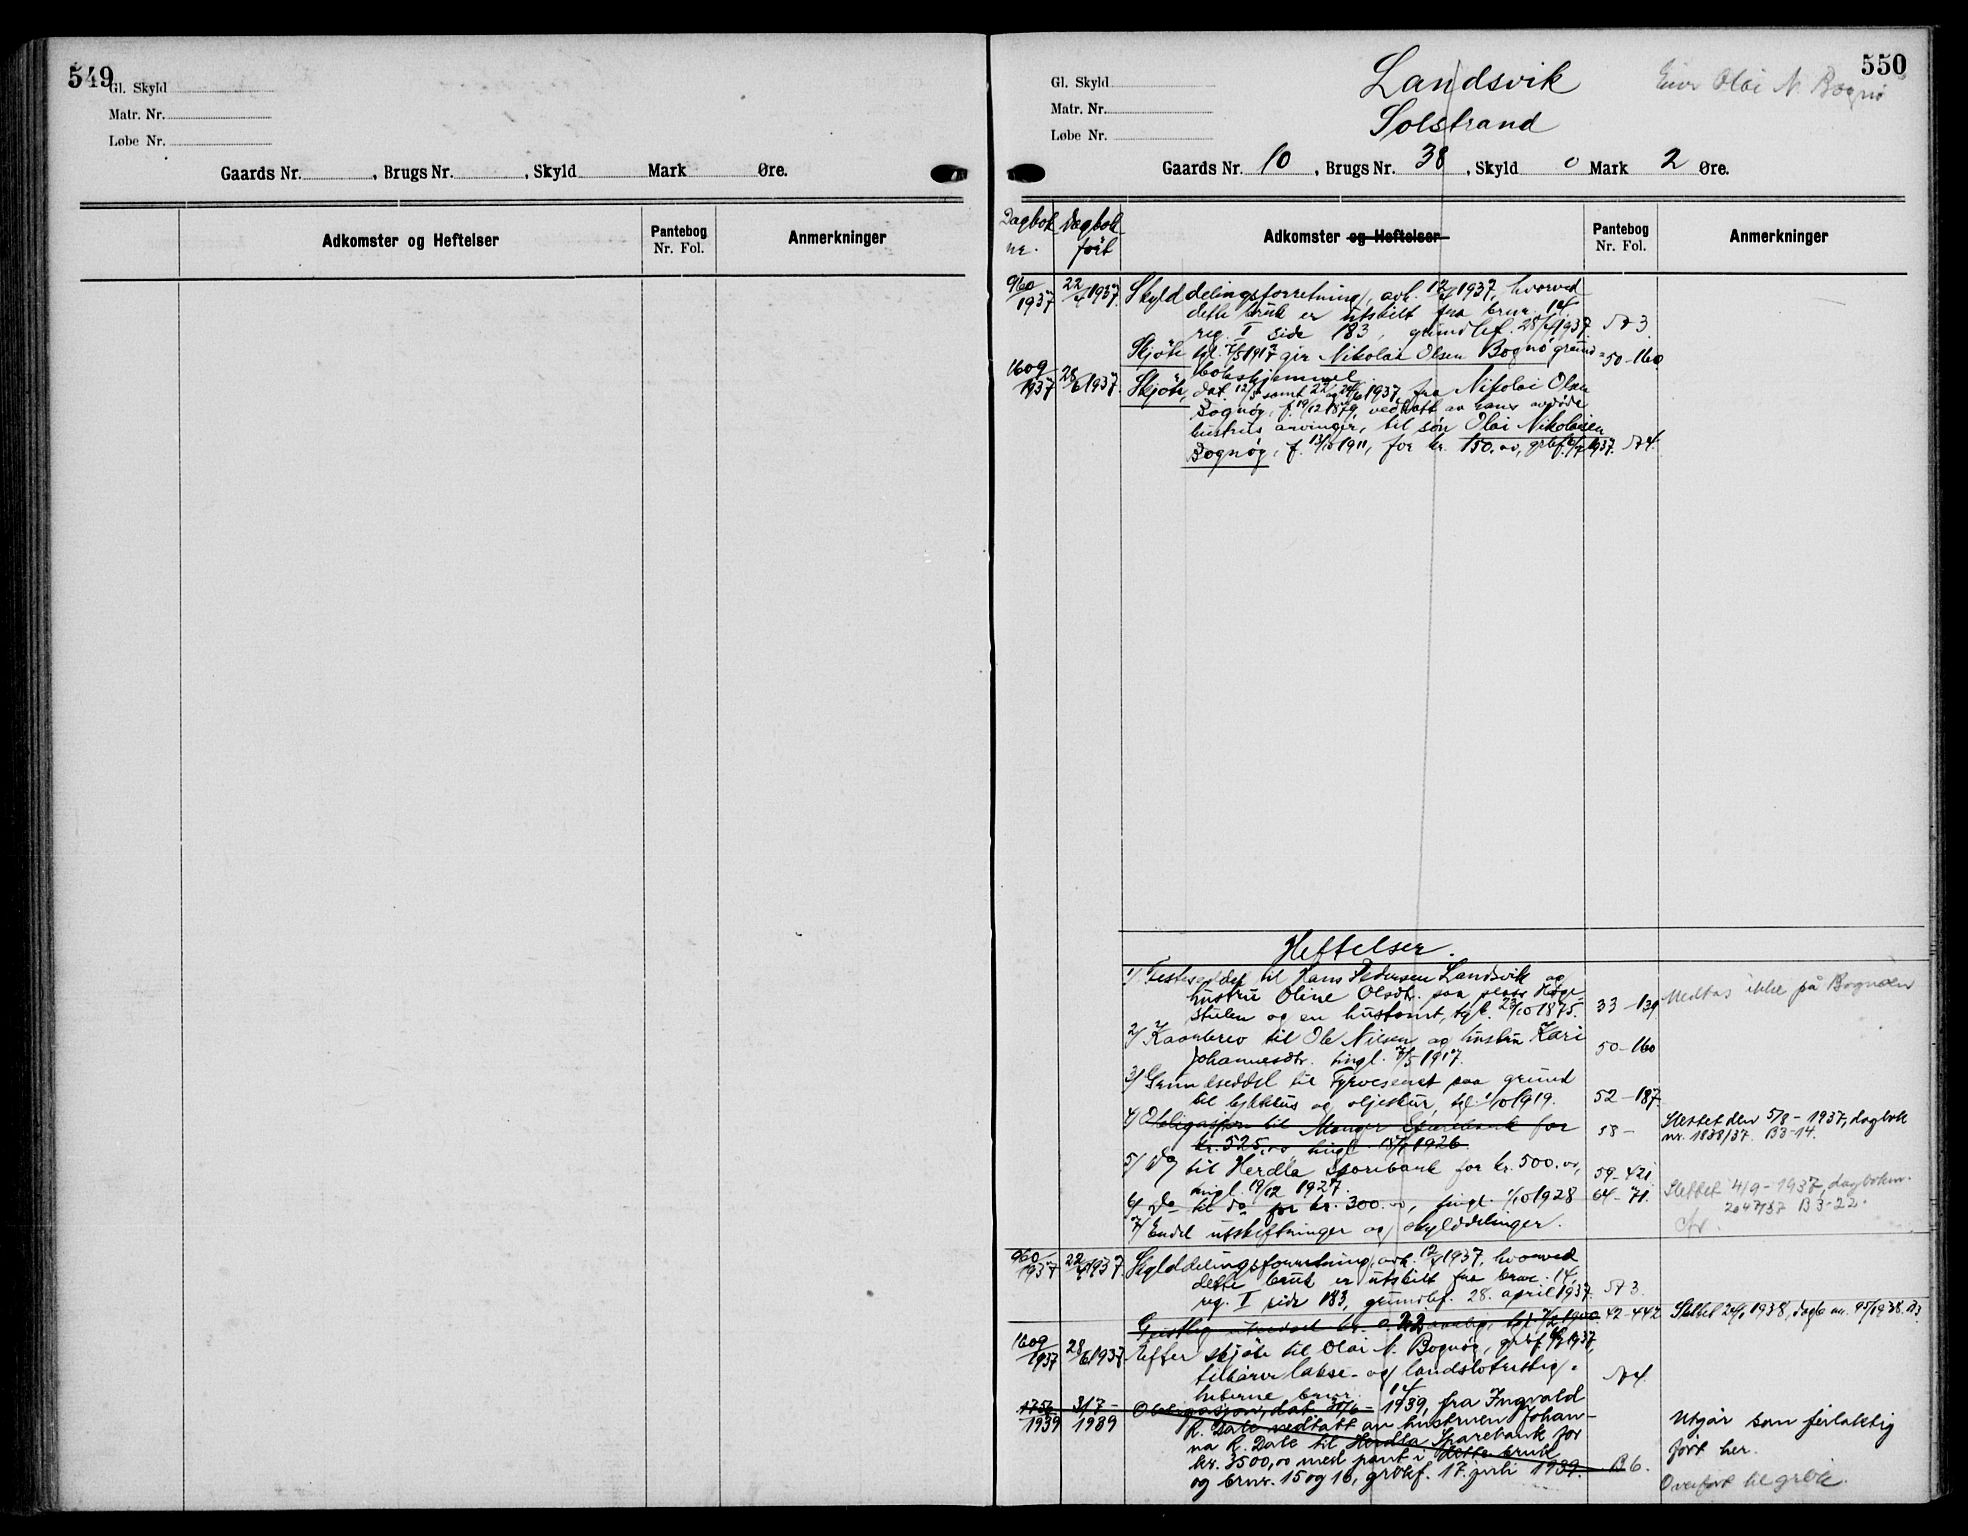 549
Gl. Skyld
Matr. Nr.
Løbe Nr.
Gaards Nr. , Brugs Nr. , Skyld Mark Øre.
Adkomster og Heftelser
Pantebog
Nr. Fol.
Anmerkninger
550
Gl. Skyld
Matr. Nr.
Løbe Nr.
Landsvik
Solstrand
Eier Olai N. Bognø
Gaards Nr. 10 , Brugs Nr. 38 , Skyld 0 Mark 2 Øre.
Dagbok nr.
Dagbok ført
Adkomster og Heftelser
Pantebog
Nr. Fol.
Anmerkninger
960/1937 22/4 1937 Skylddelingsforretning, avh. 12/4 1937, hvorved
dette bruk er utskilt fra brnr. 14
reg. I side 183, grundbf. 28/4 1937. A 3
Skjøte tgl. 7/5 1917 gir Nikolai Olsen Bognø grund= 50-160
bokshjemmel
1609/1937 28/6 1937 Skjøte, dat. 12/5 samt 22 og 24/6 1937, fra Nikolai Olsen
Bognøy, f. 19/12 1879, vedtatt av hans avdøde
hustrus arvinger, til søn Olai Nikolaisen
Bognøy, f. 13/10 1911, for kr. 150.00, grbf. 6/7 1937. A 4.
Heftelser.
1/ Festeseddel til Hans Pedersen Landsvik og
hustru Oline Olsdtr. paa plass Høge-
stulen og en hustomt, tgl. 23/10 1875. 33-139 Medtas ikke på Bognøen
2/ Kaarbrev til Ole Nilsen og hustru Kari
Johannesdtr. tingl. 7/5 1917. 50-160
3/ Grundseddel til Fyrvesenet paa grund
til lykthus og oljeskur, tgl. 1/10 1919. 52-187.
4/ Obligasjon til Manger Sparebank for
kr. 525.00, tingl. 15/7 1926 58- Slettet den 5/8-1937, dagbok
nr. 1838/37. B3-14.
5/ Do til Herdla Sparebank for kr. 500.00,
tingl. 19/12 1927. 59-421
6/ Do til do for kr. 300.00, tingl. 1/10 1928 64-71. Slettet 4/9-1937, dagboknr.
2047/37 B3-22.
7/ Endel utskiftninger og skylddelinger.
960/1937 22/4 1937 Skylddelingsforretning, avh. 12/4 1937, hvorved
dette bruk er utskilt fra brnr. 14,
reg. I side 183, grundbf. 28. april 1937. A 3.
42-442 Slettet 24/1 1938, dagb. nr. 95/1938. B3.
1609/1937 28/6 1937 Efter skjøte til Olai N. Bognøy, grbf. 6/7 1937,
tilhører lakse- og landslottrettig=
heterne brnr. 14 A 4
1756/1939 3/7-1939 Obligasjon, dat. 30/6-1939, fra Ingvald
R. Dale vedtatt av hustruen Johan-
na R. Dale til Herdla Sparebank for
kr. 3500,00 med pant i dette bruk
og brnr. 15 og 16, grbokf. 17. juli 1939. B 6.
Utgår som feilaktig
ført her.
Overført til grbok.